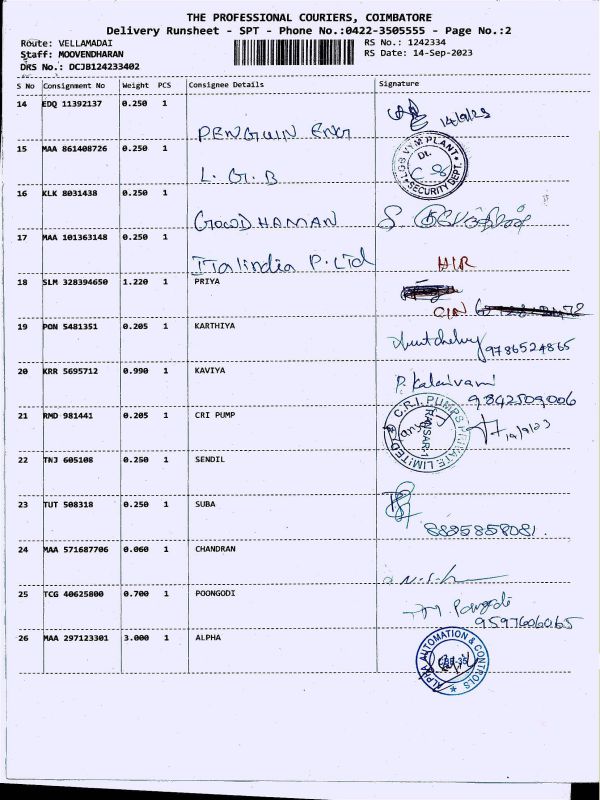 THE PROFESSIONAL COURIERS, COIMBATORE
Delivery Runsheet - SPT - Phone No.:0422-3505555 - Page No.:2
Route: VELLAMADAI RS No.: 1242334
Staff: MOOVENDHARAN RS Date: 14-Sep-2023
DRS No.: DCJB124233402
S No Consignment No Weight PCS Consignee Details Signature
14 EDQ 11392137 0.250 1 PENGUIN ENG 14/9/23
15 MAA 861408726 0.250 1 L.G.B LGB VTM PLANT DL. SECURITY DEPT.
16 KLK 8031438 0.250 1 GOODHAMAN
17 MAA 101363148 0.250 1 Italindia P. Ltd
18 SLM 328394650 1.220 1 PRIYA
19 PON 5481351 0.205 1 KARTHIYA 9786524865
20 KRR 5695712 0.990 1 KAVIYA P. Kalaivani 9842509006
21 RMD 981441 0.205 1 CRI PUMP C.R.I. PUMPS PRIVATE LIMITED
22 TNJ 605108 0.250 1 SENDIL
23 TUT 508318 0.250 1 SUBA 8895858081
24 MAA 571687706 0.060 1 CHANDRAN
25 TCG 40625800 0.700 1 POONGODI 9597606065
26 MAA 297123301 3.000 1 ALPHA ALPHA AUTOMATION & CONTROLS CBE-35